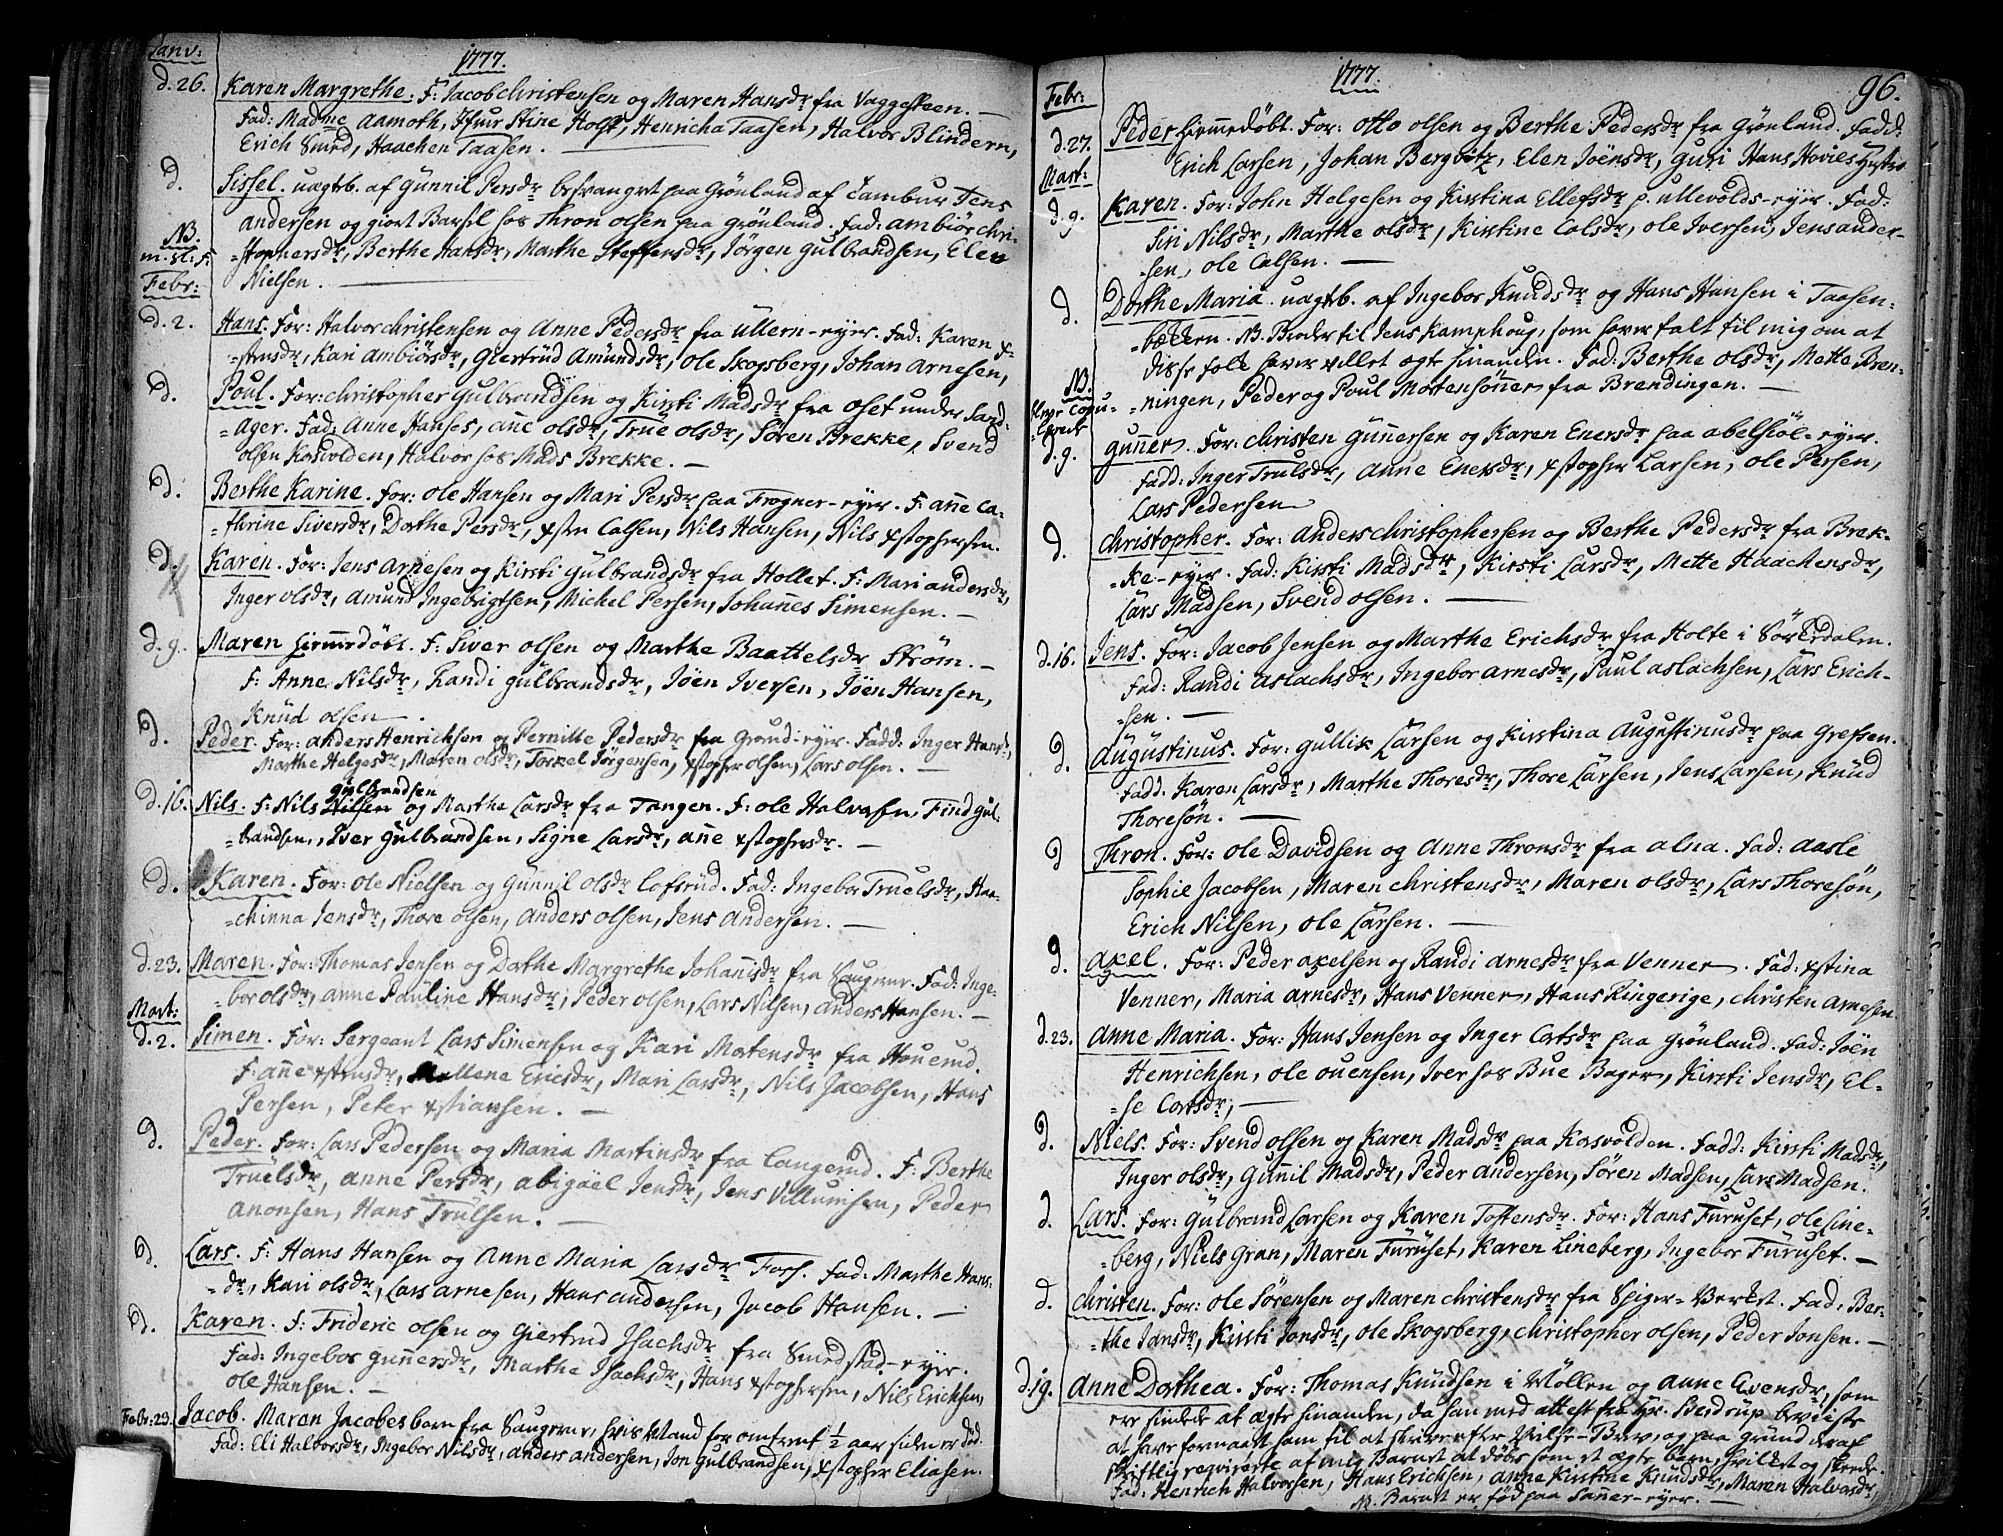 Janv: 1777.
d. 26. Karen Margrethe. F: Jacob Christensen og Maren Hansdr fra Vaggesteen. —
Fad: Madme Aamoth, Jfuir Stine Holst, Henricha Taasen, Halvor Blindern,
Erich Smed, Haachen Taasen. —
d. Sissel. uagtb. af Gunnil Persdr besvangret paa Grönland af Tambur Jens
Andersen og giort Barsel hos Thron Olsen paa Grönland. Fad: Ambiör Chri-
NB. =stophersdr, Berthe Hansdr, Marthe Steffensdr, Jörgen Gulbrandsen, Elen
m. st: F. Nielsen. —
Febr:
d. 2. Hans. For: Halvor Christensen og Anne Pedersdr fra Ullern-eyer. Fad: Karen X-
=stensdr, Kari Ambiörsdr, Giertrüd Amundsdr, Ole Skogsberg, Johan Arnesen,
d. Poul. For: Christopher Gulbrandsen og Kirsti Madsdr fra Oset under Sand-
=Ager. Fad: Anne Hanses, Ane Olsdr, True Olsdr, Sören Brekke, Svend
Olsen Kosvolden, Halvor hos Mads Brekke. —
d. Berthe Karine. For: Ole Hansen og Mari Persdr paa Frogner-eyer. F: Ane Ca-
=thrine Siversdr, Dorthe Persdr, Xsten Calsen, Nils Hansen, Nils Xstophersen.
d. Karen. For: Jens Arnesen og Kirsti Gulbrandsdr fra Hollet. F: Mari Andersdr,
Inger Olsdr, Amund Ingebrigtsen, Michel Persen, Johanes Simensen. —
d. 9. Maren Hiemedöbt. F: Siver Olsen og Marthe Baattelsdr Ström. —
F: Anne Nilsdr, Randi Gulbrandsdr, Jöen Iversen, Jöen Hansen,
Knüd Olsen.
d. Peder. For: Anders Henrichsen og Pernille Pedersdr fra Grönd-eyer. Fadd: Inger Hansdr,
Marthe Helgesdr, Maren Olsdr, Torkel Jörgensen, Xstopher Olsen, Lars Olsen. —
gülbrandsen
d. 16. Nils. F: Nils Nilsen og Marthe Larsdr fra Tangen. F: Ole Halvorsen, Find Gul-
=brandsen, Iver Gulbrandsen, Signe Larsdr, Ane Xstophersdr. —
d. Karen. For: Ole Nielsen og Gunnil Olsdr Lofsrüd. Fad: Ingebor Truelsdr, Haa-
=chinna Jensdr, Thore Olsen, Anders Olsen, Jens Andersen. —
d. 23. Maren. For: Thomas Jensen og Dorthe Margrethe Johanisdr fra Saugener. Fad: Inge-
=bor Olsdr, Anne Pauline Hansdr, Peder Olsen, Lars Nilsen, Anders Hansen. —
Mart:
d. 2. Simen. For: Sergeant Lars Simensen og Kari Mortensdr fra Houerud.
F: Ane Xstensdr, Mallene Ericsdr, Mari Larsdr, Nils Jacobsen, Hans
Persen, Peter Xstiansen. —
d. Peder. For: Lars Pedersen og Maria Martinsdr fra Langerud. F: Berthe
Truelsdr, Anne Persdr, Abigael Jensdr, Jens Villumsen, Peder
Anonsen, Hans Trulsen. —
d. Lars. F: Hans Hansen og Anne Maria Larsdr Foss. Fad: Marthe Hans-
=dr, Kari Olsdr, Lars Arnesen, Hans Andersen, Jacob Hansen. —
d. Karen. F: Frideric Olsen og Giertrud Isachsdr fra Smedstad-eyer.
Fad: Ingebor Gunnersdr, Marthe Isachsdr, Hans Xstophersen, Nils Erichsen,
Ole Hansen. —
Febr: 23. Jacob. Maren Jacobes barn fra Saugener, hvis Mand for omtrent 1/2 aar siden er död.
Fad: Eli Halvorsdr, Ingebor Nilsdr, Anders Andersen, Jon Gulbrandsen, Xstopher Eliasen.
1777. 96.
Febr:
d. 27. Peder Hiemmedöbt. For: Otto Olsen og Berthe Pedersdr fra Grönland. Fadd:
Erich Larsen, Johan Bergvitz, Elen Jöensdr, Guri Hans Hovies
Mart:
d. 9. Karen. For: John Helgesen og Kirstina Ellefsdr p. Ullevolds-eyer. Fad:
Siri Nilsdr, Marthe Olsdr, Kirstine Calsdr, Ole Iversen, Jens Ander-
=sen, Ole Calsen. —
d. Dorthe Maria. uagtb. af Ingebor Knudsdr og Hans Hansen i Taasen-
=bækken. NB. Broder til Jens Kamphoug, som haver talt til mig om at
disse folk haver villet ægte hinanden. Fad: Berthe Olsdr, Mette Bren-
NB. =ningen, Peder og Poul Mortensönner fra Brendingen. —
d. 9. Gunner. For: Christen Gunnersen og Karen Enersdr paa Abelsöl-eyer.
Fadd: Inger Trulsdr, Anne Enersdr, Xstopher Larsen, Ole Persen,
Lars Pedersen
d. Christopher. For: Anders Christophersen og Berthe Pedersdr fra Brek-
=ke-eyer. Fad: Kirsti Madsdr, Kirsti Larsdr, Mette Haachensdr,
Lars Madsen, Svend Olsen. —
d. 16. Jens. For: Jacob Jensen og Marthe Erichsdr fra Holte i Sörkedalen.
Fad: Randi Aslachsdr, Ingebor Arnesdr, Paul Aslachsen, Lars Erich-
=sen. —
d Augustinus. For: Gullik Larsen og Kirstina Augustinusdr paa Grefsen.
Fadd: Karen Larsdr, Marthe Thoresdr, Thore Larsen, Jens Larsen, Knud
Thoresön. —
d Thron. For: Ole Davidsen og Anne Thronsdr fra Alna. Fad: Aasle
Sophie Jacobsen, Maren Christensdr, Maren Olsdr, Lars Thoresön,
Erich Nilsen, Ole Larsen. —
d. Axel. For: Peder Axelsen og Randi Arnesdr fra Venner. Fad: Xstina
Venner, Maria Arnesdr, Hans Venner, Hans Ringerige, Christen Arnesen
d. 23. Anne Maria. For: Hans Jensen og Inger Cortsdr paa Grönland. Fad: Jöen
Henrichsen, Ole Ouensen, Iver hos Bue Bager, Kirsti Jensdr, El-
=se Cortsdr, —
d. Niels. For: Svend Olsen og Karen Madsdr paa Kosvolden. Fadd: Kirsti Madsdr,
Inger Olsdr, Gunnil Madsdr, Peder Andersen, Sören Madsen, Lars Madsen.
d. Lars. For: Gülbrand Larsen og Karen Tostensdr. For: Hans Furuset, Ole Line-
=berg, Niels Gran, Maren Füruset, Karen Lineberg, Ingebor Füruset. —
d. Christen. For: Ole Sörensen og Maren Christensdr fra Spiger-Verket. Fad: Ber-
=the Jansdr, Kirsti Jonsdr, Ole Skogsberg, Christopher Olsen, Peder Jonsen. —
d. 19. Anne Dorthea. For: Thomas Knudsen i Möllen og Anne Evensdr, som
ere sindede at ægte hinanden, da han med attest fra Hr. Sverdrup beviiste
at have formaaet ham til at skrive efter Vielse-Brev, og paa grund deraf
skriftlig reqvirerte af mig Barnet at döbes som et ægte barn, hvilket og skeede.
Fad: Henrich Halvorsen, Hans Erichsen, Anne Kirstine Knudsdr, Maren Halvorsdr,
NB. Barnet er föd paa Sanner-eyer. —